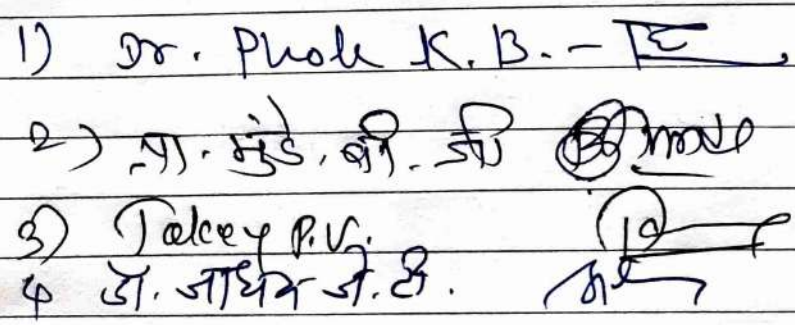 1) Dr. Phole K. B. -
२) प्रा. मुंडे. बी. जी
3) Takey P.V.
४ डॉ. जाधव जे. टी.